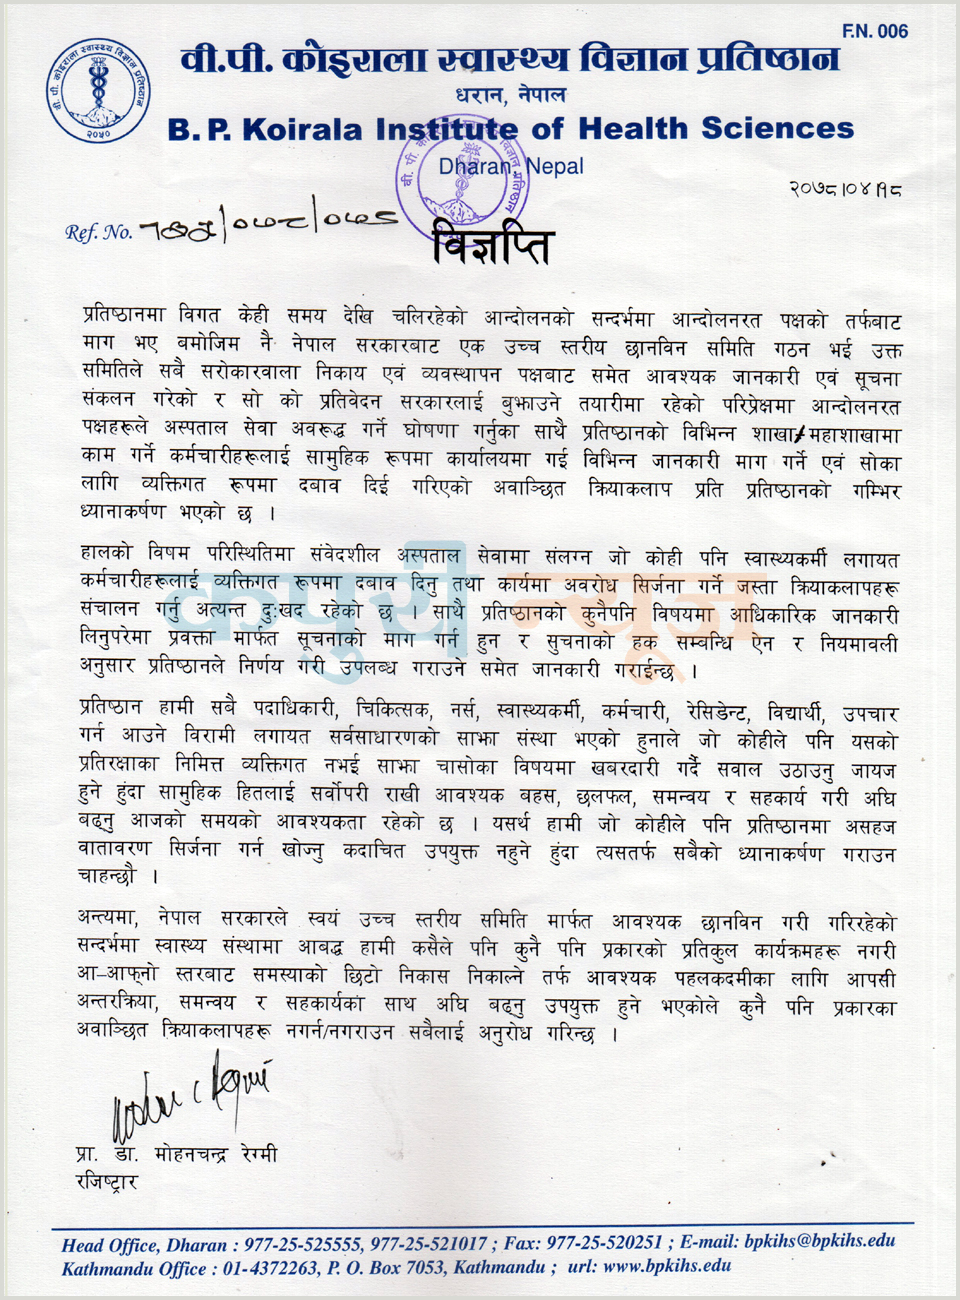 F.N. 006
वी.पी. कोइराला स्वास्थ्य विज्ञान प्रतिष्ठान
धरान, नेपाल
B. P. Koirala Institute of Health Sciences
Dharan, Nepal
२०७८।०४।१८
Ref. No.
विज्ञप्ति
प्रतिष्ठानमा विगत केही समय देखि चलिरहेको आन्दोलनको सन्दर्भमा आन्दोलनरत पक्षको तर्फबाट
माग भए बमोजिम नै नेपाल सरकारबाट एक उच्च स्तरीय छानविन समिति गठन भई उक्त
समितिले सबै सरोकारवाला निकाय एवं व्यवस्थापन पक्षबाट समेत आवश्यक जानकारी एवं सूचना
संकलन गरेको र सो को प्रतिवेदन सरकारलाई बुझाउने तयारीमा रहेको परिप्रेक्षमा आन्दोलनरत
पक्षहरूले अस्पताल सेवा अवरूद्ध गर्ने घोषणा गर्नुका साथै प्रतिष्ठानको विभिन्न शाखा/महाशाखामा
काम गर्ने कर्मचारीहरूलाई सामुहिक रूपमा कार्यालयमा गई विभिन्न जानकारी माग गर्ने एवं सोका
लागि व्यक्तिगत रूपमा दबाव दिई गरिएको अवाञ्छित क्रियाकलाप प्रति प्रतिष्ठानको गम्भिर
ध्यानाकर्षण भएको छ ।
हालको विषम परिस्थितिमा संवेदशील अस्पताल सेवामा संलग्न जो कोही पनि स्वास्थ्यकर्मी लगायत
कर्मचारीहरूलाई व्यक्तिगत रूपमा दबाव दिनु तथा कार्यमा अवरोध सिर्जना गर्ने जस्ता क्रियाकलापहरू
संचालन गर्नु अत्यन्त दुःखद रहेको छ । साथै प्रतिष्ठानको कुनैपनि विषयमा आधिकारिक जानकारी
लिनुपरेमा प्रवक्ता मार्फत सूचनाको माग गर्न हुन र सुचनाको हक सम्बन्धि ऐन र नियमावली
अनुसार प्रतिष्ठानले निर्णय गरी उपलब्ध गराउने समेत जानकारी गराईन्छ ।
प्रतिष्ठान हामी सबै पदाधिकारी, चिकित्सक, नर्स, स्वास्थ्यकर्मी, कर्मचारी, रेसिडेन्ट, विद्यार्थी, उपचार
गर्न आउने विरामी लगायत सर्वसाधारणको साझा संस्था भएको हुनाले जो कोहीले पनि यसको
प्रतिरक्षाका निमित्त व्यक्तिगत नभई साझा चासोका विषयमा खबरदारी गर्दै सवाल उठाउनु जायज
हुने हुंदा सामुहिक हितलाई सर्वोपरी राखी आवश्यक बहस, छलफल, समन्वय र सहकार्य गरी अघि
बढ्नु आजको समयको आवश्यकता रहेको छ । यसर्थ हामी जो कोहीले पनि प्रतिष्ठानमा असहज
वातावरण सिर्जना गर्न खोज्नु कदाचित उपयुक्त नहुने हुंदा त्यसतर्फ सबैको ध्यानाकर्षण गराउन
चाहन्छौ ।
अन्त्यमा, नेपाल सरकारले स्वयं उच्च स्तरीय समिति मार्फत आवश्यक छानविन गरी गरिरहेको
सन्दर्भमा स्वास्थ्य संस्थामा आबद्ध हामी कसैले पनि कुनै पनि प्रकारको प्रतिकुल कार्यक्रमहरू नगरी
आ–आफ्नो स्तरबाट समस्याको छिटो निकास निकाल्ने तर्फ आवश्यक पहलकदमीका लागि आपसी
अन्तरक्रिया, समन्वय र सहकार्यका साथ अघि बढ्नु उपयुक्त हुने भएकोले कुनै पनि प्रकारका
अवाञ्छित क्रियाकलापहरू नगर्न/नगराउन सबैलाई अनुरोध गरिन्छ ।
प्रा. डा. मोहनचन्द्र रेग्मी
रजिष्ट्रार
Head Office, Dharan : 977-25-525555, 977-25-521017 ; Fax: 977-25-520251 ; E-mail: bpkihs@bpkihs.edu
Kathmandu Office : 01-4372263, P. O. Box 7053, Kathmandu ; url: www.bpkihs.edu
कपुरी न्यूज